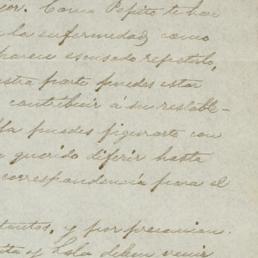 jor. Como Pepito te ha
la enfermedad, como
parece escusado repetirlo,
stra parte puedes estar
contribuir a su restable-
puedes figurarte con
querido diferir hasta
correspondencia para el
tantos, y por precaucion
ta y Lola deben venir